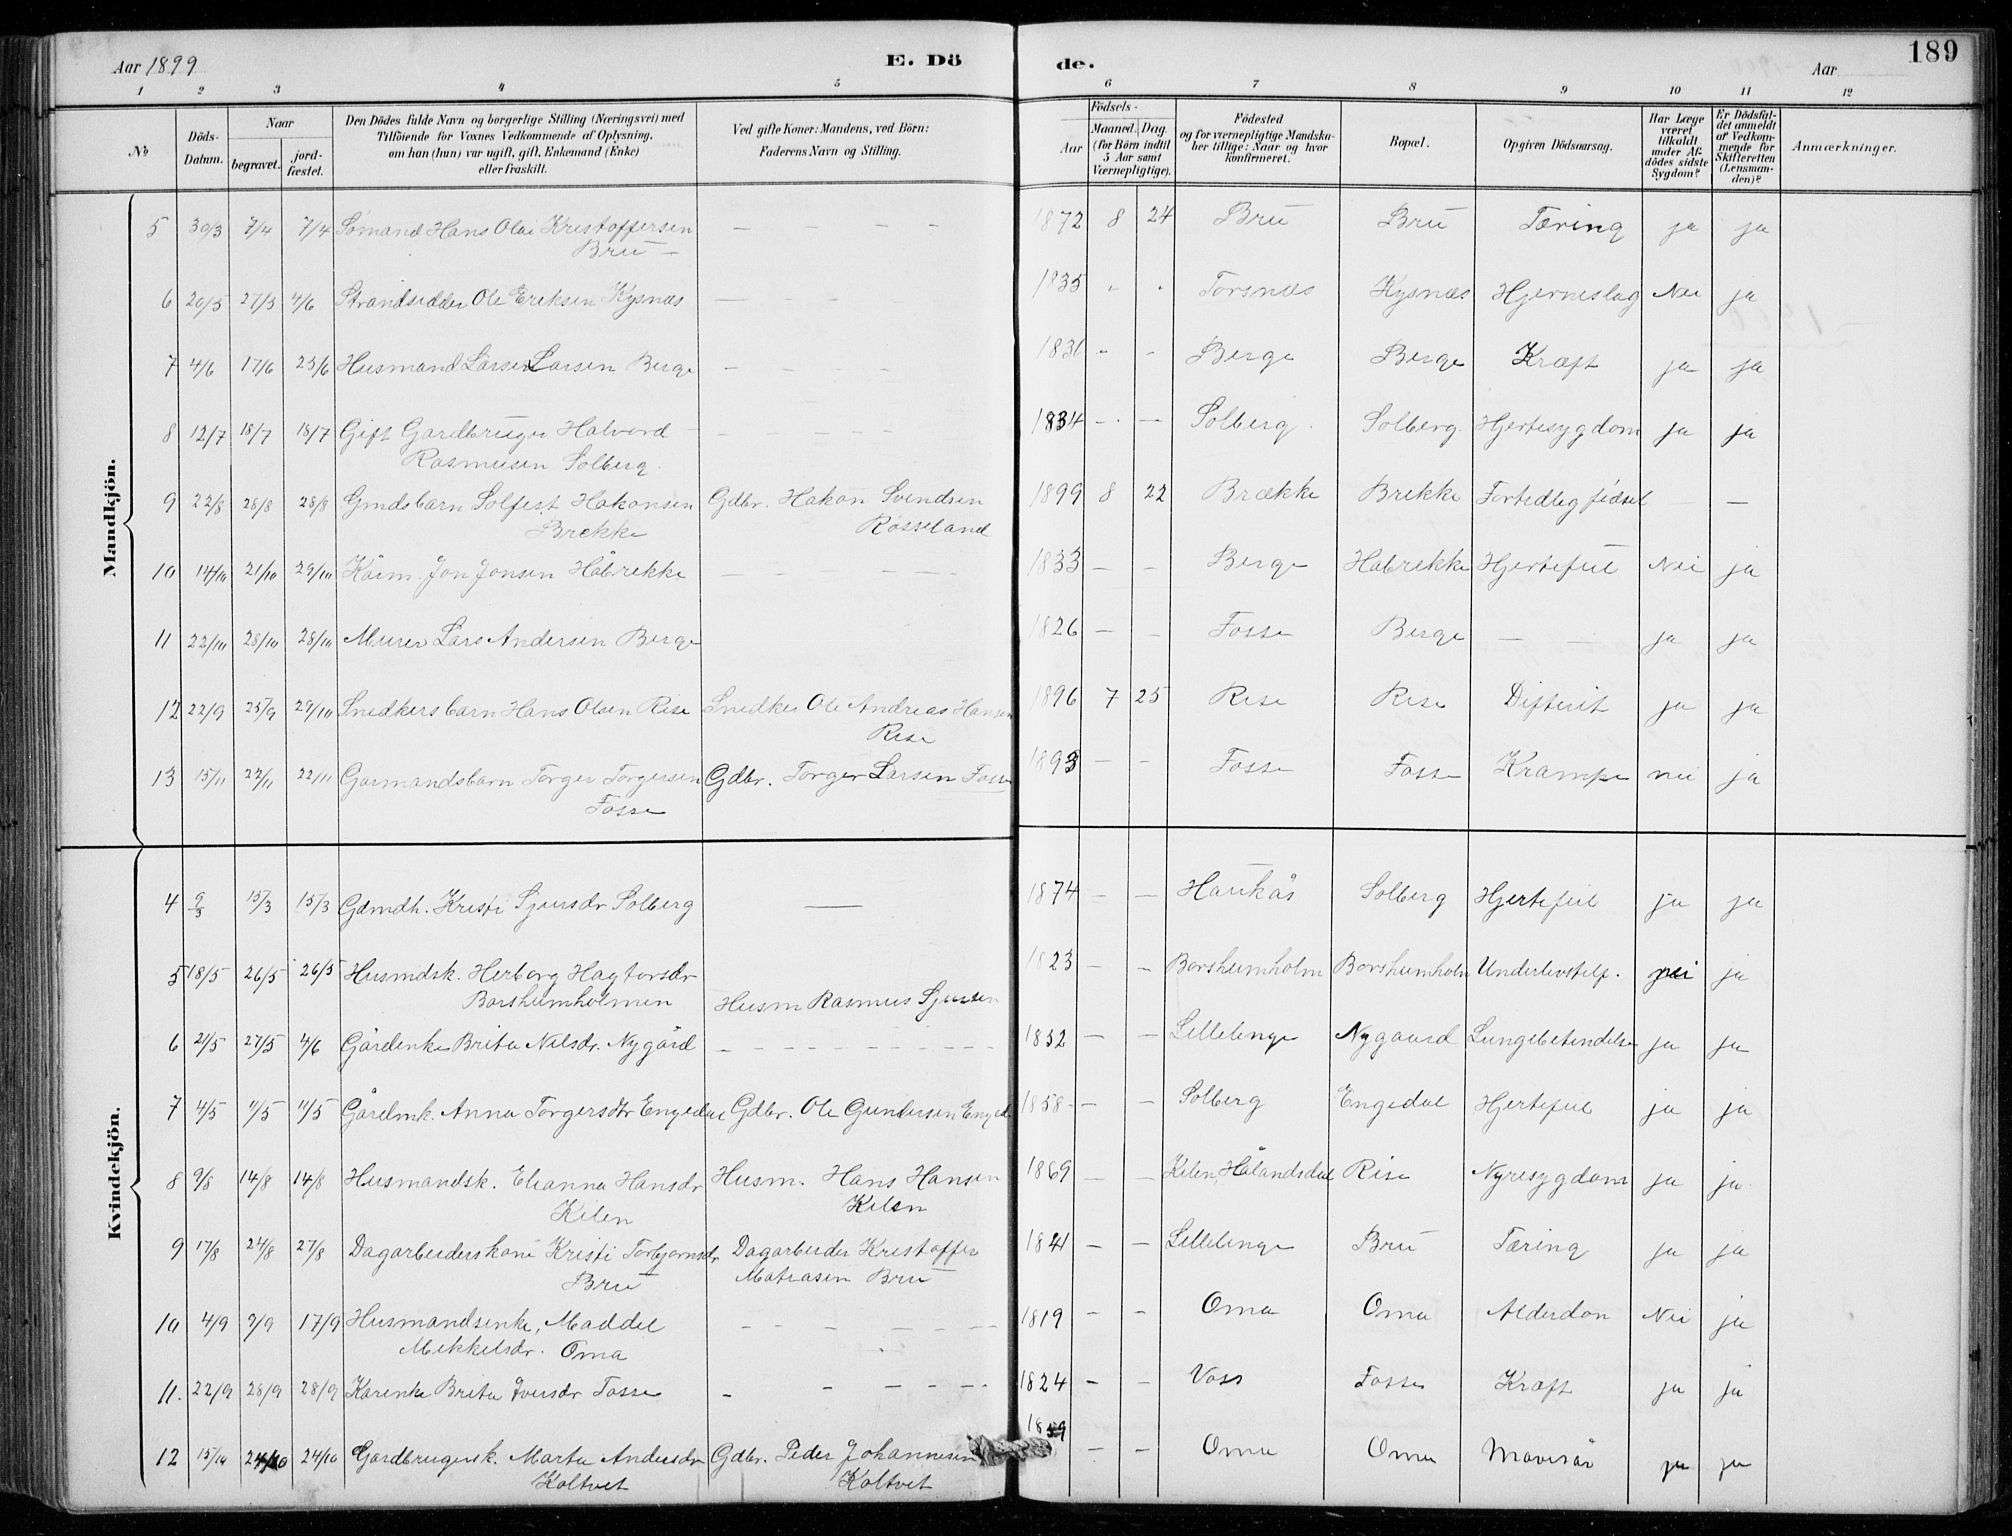 Aar 1899
E. Dö
de.
Aar
189
1 2 3 4 5 6 7 8 9 10 11 12
No
Döds-Datum.
Naar
begravet.
jord-fæstet.
Den Dödes fulde Navn og borgerlige Stilling (Næringsvei) med
Tilföiende for Voxnes Vedkommende af Oplysning,
om han (hun) var ugift, gift, Enkemand (Enke)
eller fraskilt.
Ved gifte Koner: Mandens, ved Börn:
Faderens Navn og Stilling.
Födsels-
Aar
Maaned. Dag.
(for Börn indtil 5 Aar samt Værnepligtige).
Födested
og for værnepligtige Mandskaber tillige: Naar og hvor konfirmeret.
Bopæl.
Opgiven Dödsaarsag.
Har Læge været tilkaldt under Afdödes sidste Sygdom?
Er Dödsfaldet anmeldt af Vedkommende for Skifteretten (Lensmanden)?
Anmærkninger.
Mandkjön.
5 30/3 7/4 7/4 Sømand Hans Olai Kristoffersen — — — — 1872 8 24 Bru Bru Tæring ja ja
Bru —
6 20/5 27/5 4/6 Strandsidder Ole Eriksen Kysnæs — — — 1835 Torsnæs Kysnæs Hjerneslag Nei ja
7 4/6 17/6 25/6 Husmand Larsen Larsen Berge — — — — 1831 - - Berge Berge Kræft ja ja
8 12/7 18/7 18/7 Gift Gardbruger Halvord — — — — 1834 — — Solberg Solberg Hjertesygdom ja ja
Rasmusen Solberg.
9 22/8 28/8 28/8 Gmdsbarn Solfest Hakonsen Gdbr. Hakon Svendsen 1899 8 22 Brække Brekke Fortidlig fødsel — —
Brekke Røsseland
10 14/10 21/10 29/10 Kårm. Jon Jonsen Håbrekke — — — — 1833 — — Berge Habrekke Hjertefeil Nei ja
11 22/10 28/10 28/10 Murer Lars Andersen Berge 1826 — — Fosse Berge — — ja ja
12 22/9 25/9 29/10 Snedkersbarn Hans Olsen Rise Snedker Ole Andreas Hansen 1896 7 25 Rise Rise Difterit ja ja
Rise
13 15/11 22/11 22/11 Garmandsbarn Torger Torgersen Gdbr. Torger Larsen Fosse 1893 — — Fosse Fosse Krampe nei ja
Fosse
Kvindekjön.
4 9/3 15/3 15/3 Gdmdh. Kristi Sjursdr Solberg — 1874 — — Haukås Solberg Hjertefeil ja ja
5 18/5 26/5 26/5 Husmdsk. Herborg Hagtorsdr 1823 — — Borshumholm Borshumholm Underlivstilf. nei ja
Borshumholmen Husm Rasmus Sjursen
6 21/5 27/5 4/6 Gårdenke Brita Nilsdr. Nygård — — — — 1832 — — Lillelinge Nygaard Lungebetendelse ja ja
7 4/5 11/5 11/5 Gårdmk. Anna Torgersdtr Engedal Gdbr. Ole Gundersen Enged. 1858 — — Solberg Engedal Hjertefeil ja ja
8 9/8 14/8 14/8 Husmandsk. Elianna Hansdr Husm. Hans Hansen 1869 — — Kilen, Hålandsdal Rise Nyresygdom ja ja
Kilen Kilen
9 17/8 24/8 27/8 Dagarbeiderskone Kristi Torbjornsdr Dagarbeider Kristoffer 1841 — — Lillelinge Bru Tæring ja ja
Bru Matiasen Bru
10 4/9 9/9 17/9 Husmandsenke, Maddel — — — — 1819 — — Oma Oma Alderdon Nei ja
Mikkelsdr. Oma
11. 22/9 28/9 28/9 Karenke Brita Iversdr Fosse — — — — 1824 — — Voss Fosse Kræft ja ja
12 15/10 24/10 24/10 Gardbrugersk. Marta Andersdr Gdbr. Peder Johannesen — — Oma Oma Mavesår ja ja
Koltvet Koltvet